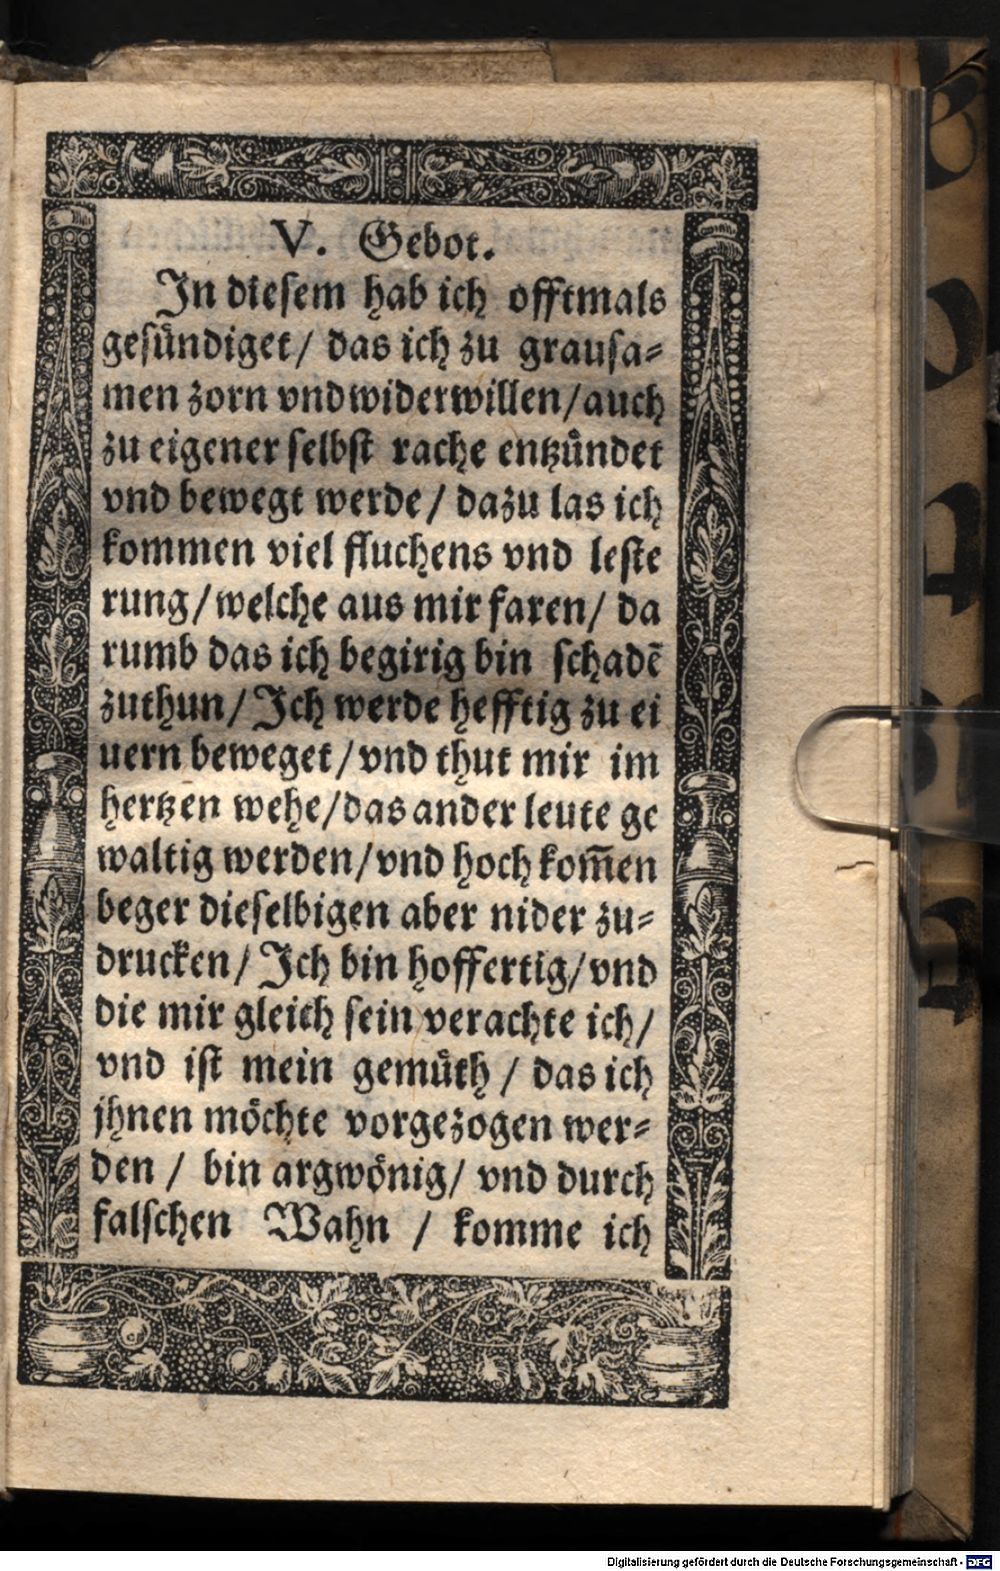 V. Gebot.
In diesem hab ich offtmals
gesuͤndiget / das ich zu grausa⸗
men zorn vnd widerwillen / auch
zu eigener selbst rache entzuͤndet
vnd bewegt werde / dazu las ich
kommen viel fluchens vnd leste
rung / welche aus mir faren / da
rumb das ich begirig bin schadẽ
zuthun / Ich werde hefftig zu ei
uern beweget / vnd thut mir im
hertzen wehe / das ander leute ge
waltig werden / vnd hoch kom̃en
beger dieselbigen aber nider zu⸗
drucken / Ich bin hoffertig / vnd
die mir gleich sein verachte ich /
vnd ist mein gemuͤth / das ich
jhnen moͤchte vorgezogen wer⸗
den / bin argwoͤnig / vnd durch
falschen Wahn / komme ich
Digitalisierung gefördert durch die Deutsche Forschungsgemeinschaft - DFG